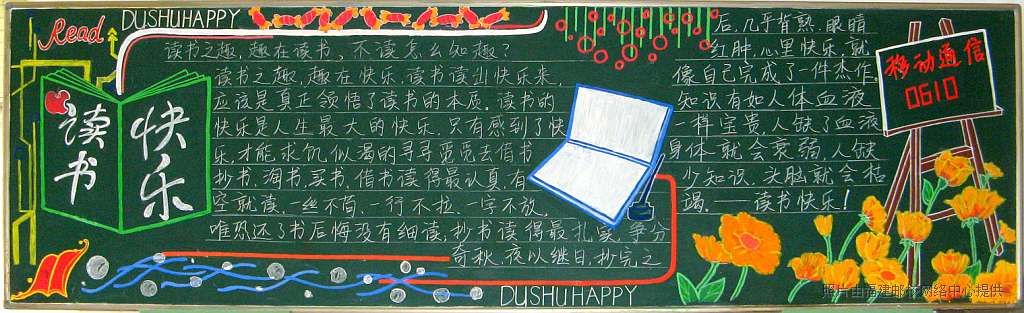 Read
DUSHUHAPPY
读书
快乐
读书之趣，趣在读书，不读怎么知趣？
读书之趣，趣在快乐，读书读出快乐来，
应该是真正领悟了读书的本质。读书的
快乐是人生最大的快乐，只有感到了快
乐，才能求饥似渴的寻寻觅觅去借书
抄书、淘书、买书，借书读得最认真，有
空就读，一丝不苟，一行不拉，一字不放，
唯恐还了书后悔没有细读；抄书读得最扎实，争分
夺秋，夜以继日，抄完之
后，几乎背熟，眼睛
红肿，心里快乐，就
像自己完成了一件杰作。
知识有如人体血液
一样宝贵，人缺了血液
身体就会衰弱，人缺
少知识，头脑就会枯
竭。——读书快乐！
DUSHUHAPPY
移动通信
0610
照片由福建邮
网络中心提供